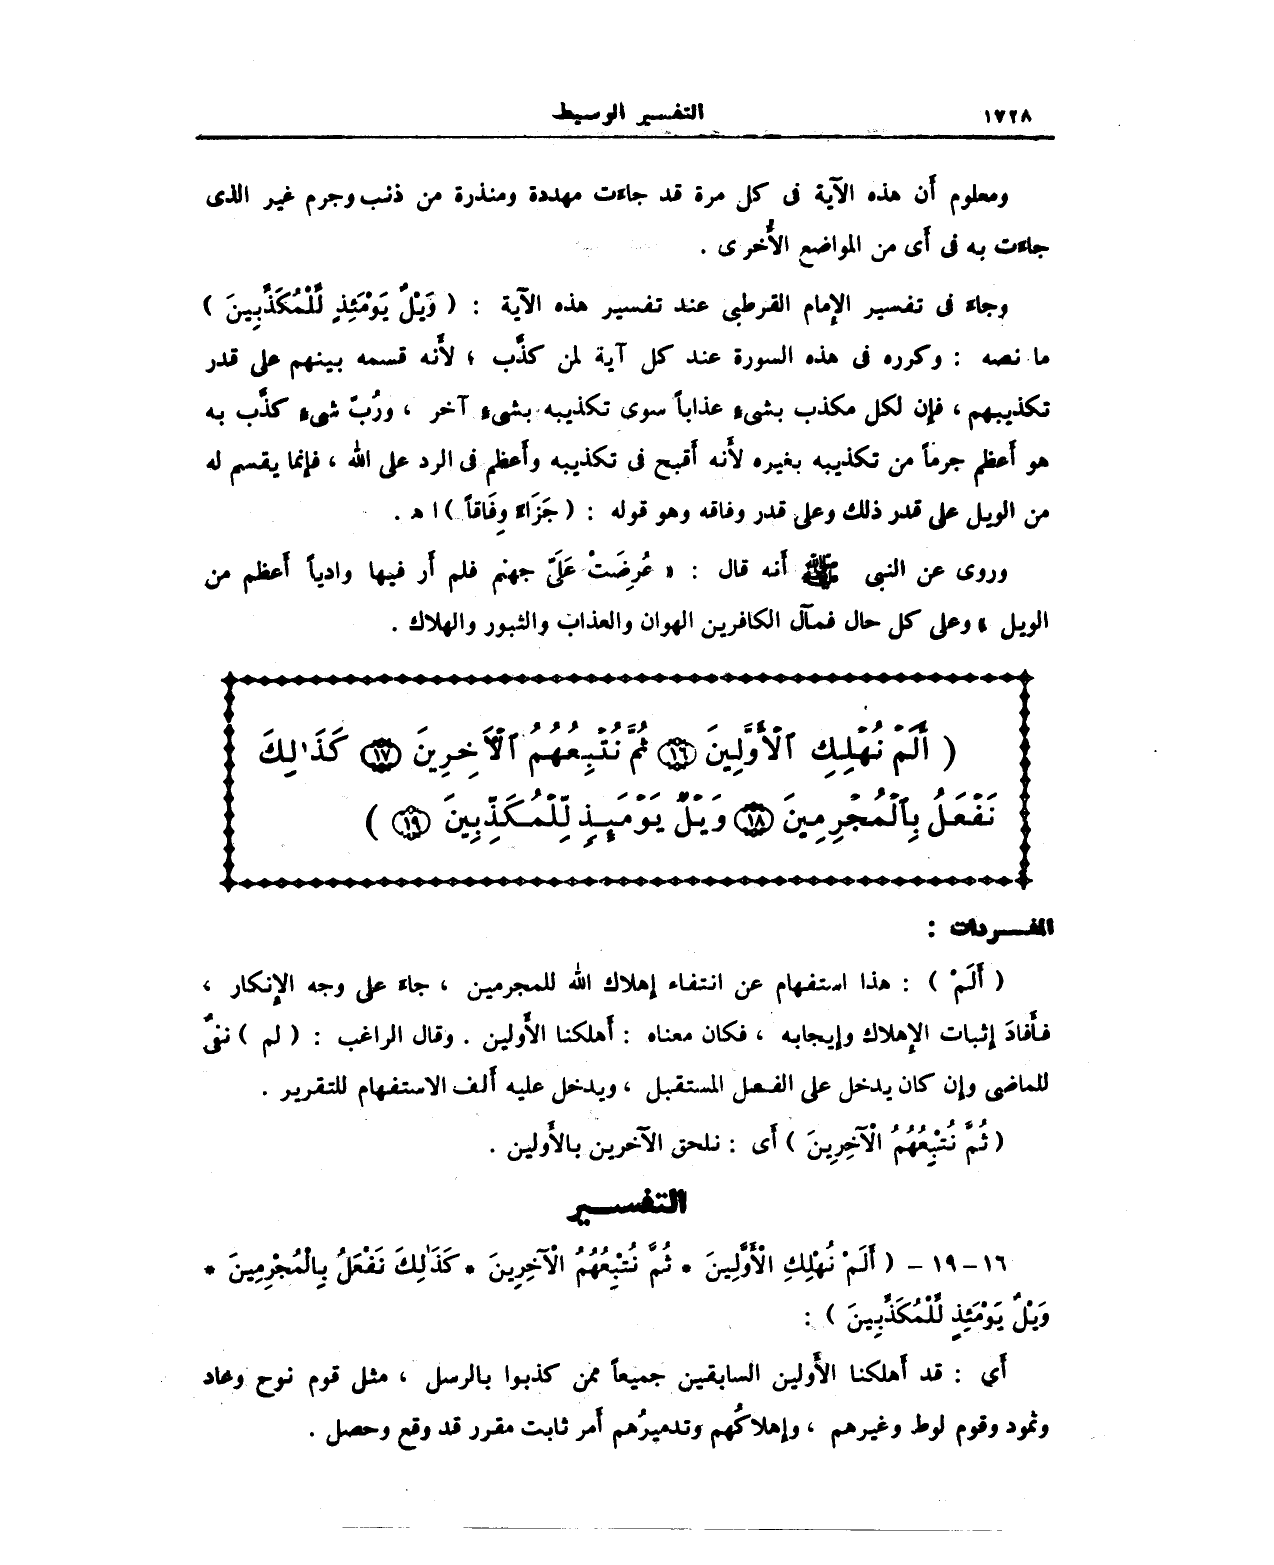 ١٧٢٨
التفسير الوسيط
ومعلوم أن هذه الآية فى كل مرة قد جاءت مهددة ومنذرة من ذنب وجرم غير الذى
جاءت به فى أى من المواضع الأُخرى .
وجاء فى تفسير الإمام القرطبى عند تفسير هذه الآية : ( وَيْلٌ يَوْمَئِذٍ لِّلْمُكَذِّبِينَ )
ما نصه : وكرره فى هذه السورة عند كل آية لمن كذَّب ؛ لأنه قسمه بينهم على قدر
تكذيبهم ، فإن لكل مكذب بشىء عذاباً سوى تكذيبه بشىء آخر ، ورُبّ شىء كذَّب به
هو أعظم جرماً من تكذيبه بغيره لأنه أقبح فى تكذيبه وأعظم فى الرد على الله ، فإنما يقسم له
من الويل على قدر ذلك وعلى قدر وفاقه وهو قوله : ( جَزَاءً وِفَاقاً ) ا ه .
وروى عن النبى ﷺ أنه قال : « عُرِضَتْ عَلَىَّ جهنم فلم أر فيها وادياً أعظم من
الويل » وعلى كل حال فمآل الكافرين الهوان والعذاب والثبور والهلاك .
( أَلَمْ نُهْلِكِ ٱلْأَوَّلِينَ ١٦ ثُمَّ نُتْبِعُهُمُ ٱلْآخِرِينَ ١٧ كَذَٰلِكَ
نَفْعَلُ بِٱلْمُجْرِمِينَ ١٨ وَيْلٌ يَوْمَئِذٍ لِّلْمُكَذِّبِينَ ١٩ )
المفــردات :
( أَلَمْ ) : هذا استفهام عن انتفاء إهلاك الله للمجرمين ، جاء على وجه الإنكار ،
فأَفادَ إثبات الإهلاك وإيجابه ، فكان معناه : أهلكنا الأولين . وقال الراغب : ( لم ) نفىٌ
للماضى وإن كان يدخل على الفعل المستقبل ، ويدخل عليه ألف الاستفهام للتقرير .
( ثُمَّ نُتْبِعُهُمُ الْآخِرِينَ ) أى : نلحق الآخرين بالأَولين .
التفســير
١٦ - ١٩ - ( أَلَمْ نُهْلِكِ الْأَوَّلِينَ * ثُمَّ نُتْبِعُهُمُ الْآخِرِينَ * كَذَٰلِكَ نَفْعَلُ بِالْمُجْرِمِينَ *
وَيْلٌ يَوْمَئِذٍ لِّلْمُكَذِّبِينَ ) :
أَي : قد أهلكنا الأَولين السابقين جميعاً ممن كذبوا بالرسل ، مثل قوم نوح وعاد
وثمود وقوم لوط وغيرهم ، وإهلاكُهم وتدميرُهم أمر ثابت مقرر قد وقع وحصل .